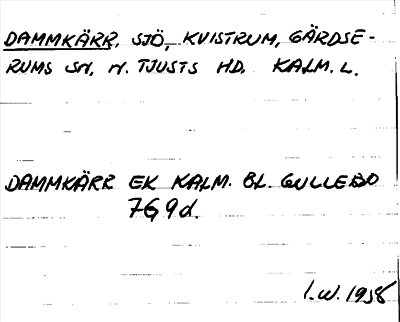 DAMMKÄRR, SJÖ, KVISTRUM, GÄRDSE-
RUMS SN, N. TJUSTS HD. KALM. L.
DAMMKÄRR EK KALM. BL. GULLEBO
7G9d.
I.W. 1958